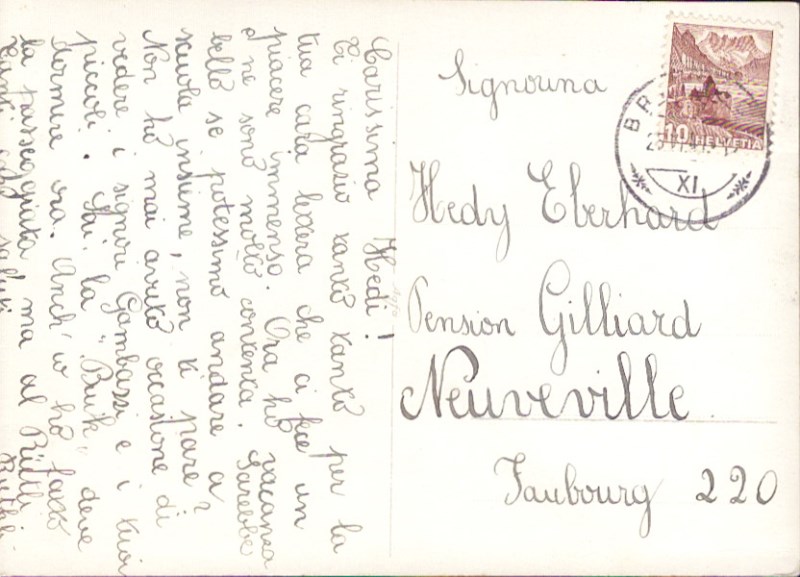 Carissima Hedi!
Ti ringrazio tanto tanto per la
tua cara lettera che ci fece un
piacere immenso. Ora ho vacanza
e ne sono molto contenta. Sarebbe
bello se potessimo andare a
scuola insieme, non ti pare?
Non hò mai avuto occasione di
vedere i signori Gambazzi e i tuoi
piccoli. Sai la "Bük" deve
dormire ora. Anch'io hò fatto
la passeggiata ma al Rütli
Tanti saluti
Ruthli
Signorina
Hedy Eberhard
Pension Gilliard
Neuveville
Faubourg 220
10 HELVETIA
XI.